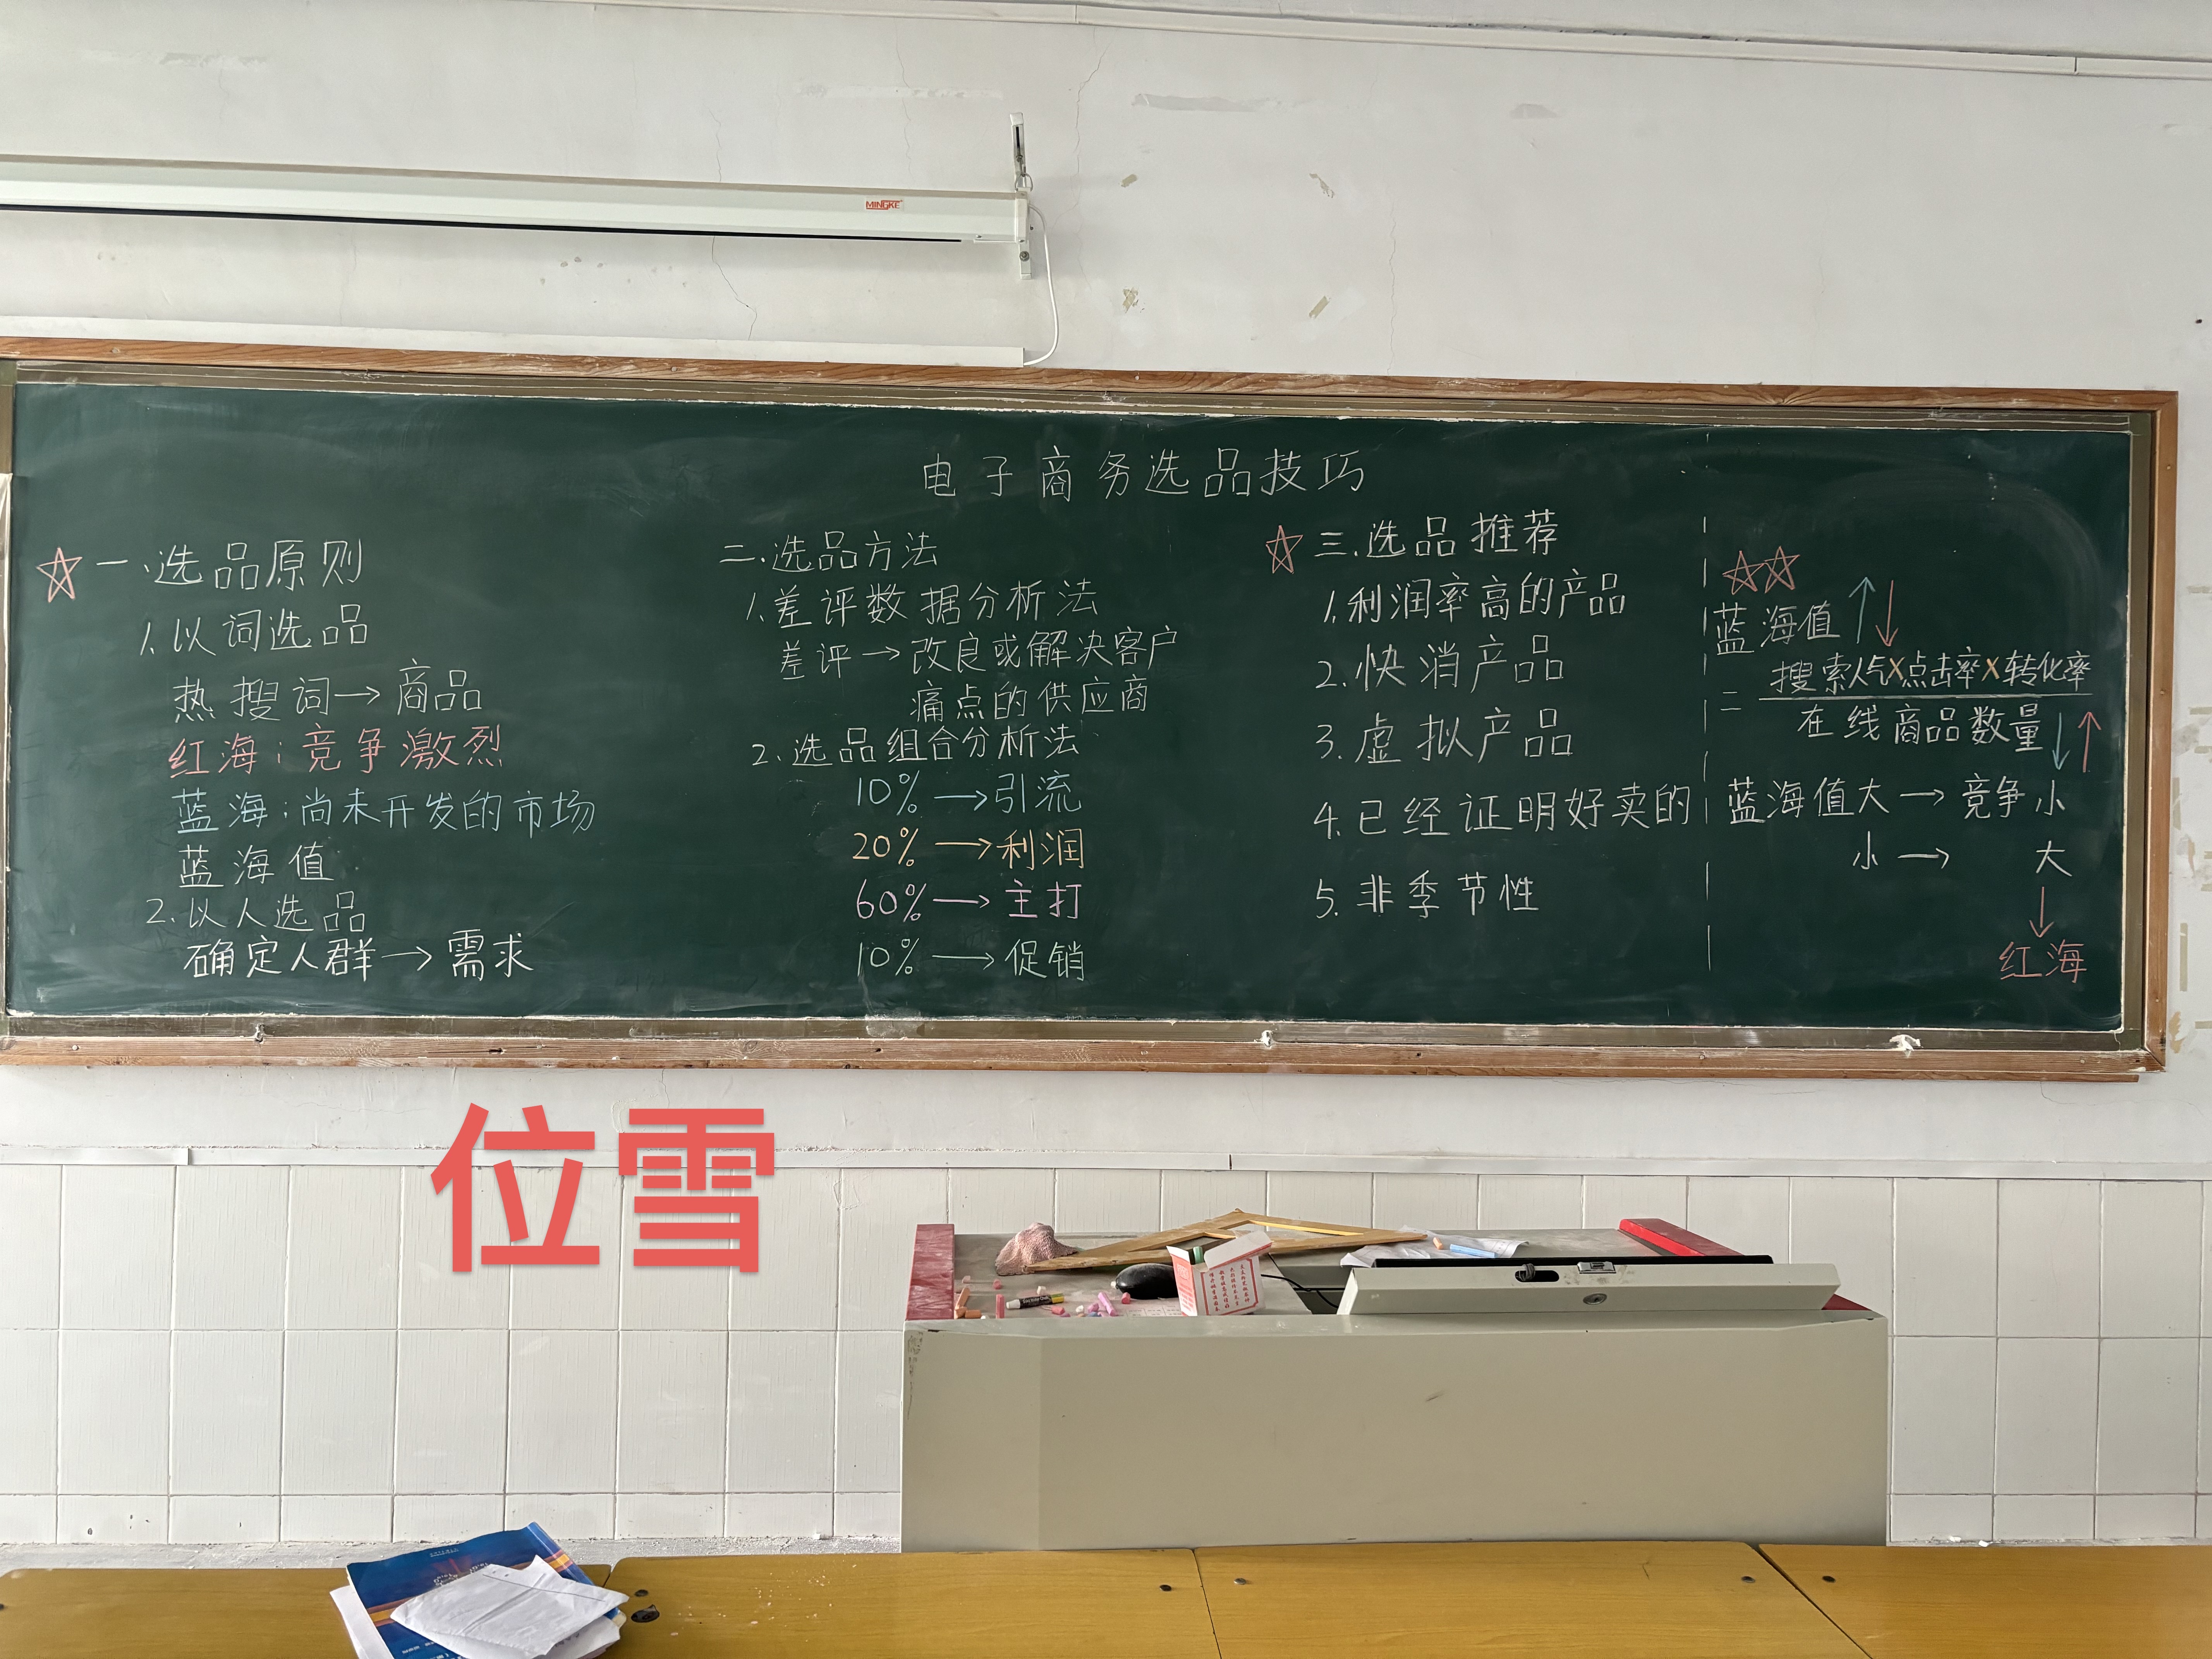 MINGKE
电子商务选品技巧
☆一、选品原则
1.以词选品
热搜词→商品
红海:竞争激烈
蓝海:尚未开发的市场
蓝海值
2.以人选品
确定人群→需求
二.选品方法
1.差评数据分析法
差评→改良或解决客户
痛点的供应商
2.选品组合分析法
10%→引流
20%→利润
60%→主打
10%→促销
☆三.选品推荐
1.利润率高的产品
2.快消产品
3.虚拟产品
4.已经证明好卖的
5.非季节性
☆☆
蓝海值↑↓
=搜索人气X点击率X转化率
在线商品数量↓↑
蓝海值大→竞争小
小→ 大
↓
红海
位雪